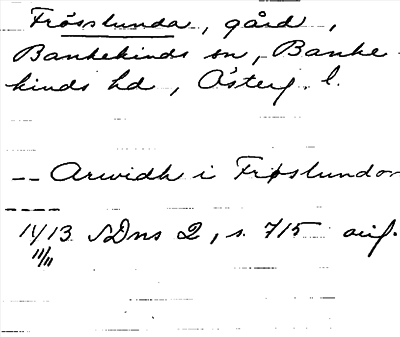 Frösslunda, gård,
Bankekinds sn, Banke-
kinds hd, Österg. l.
-- Arwidh i Frøslundom
1413 SDns 2, s. 715 avs.
11/11